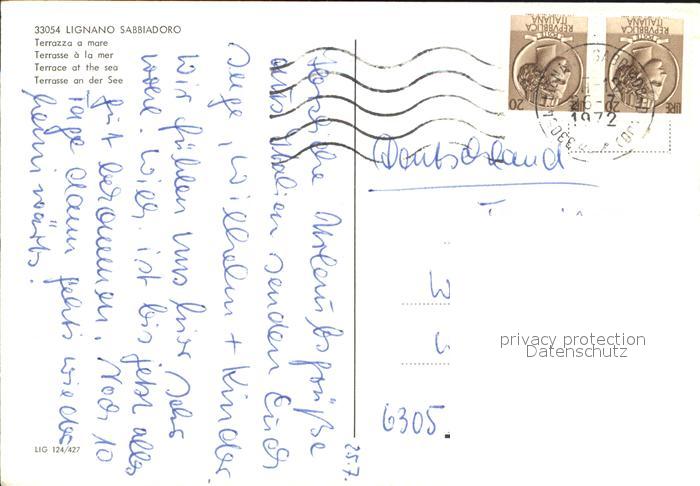 33054 LIGNANO SABBIADORO
Terrazza a mare
Terrasse à la mer
Terrace at the sea
Terrasse an der See
REPVBBLICA
ITALIANA
POSTE
LIRE 20
REPVBBLICA
ITALIANA
POSTE
LIRE 20
1972
25.7.
Herzliche Urlaubsgrüße
aus Italien senden Euch
Wilhelm + Kinder.
Wir fühlen uns hier sehr
wohl. ist bis jetzt alles
gut bekommen. Noch 10
Tage dann gehts wieder
heimwärts.
Deutschland
6305
privacy protection
Datenschutz
LIG 124/427